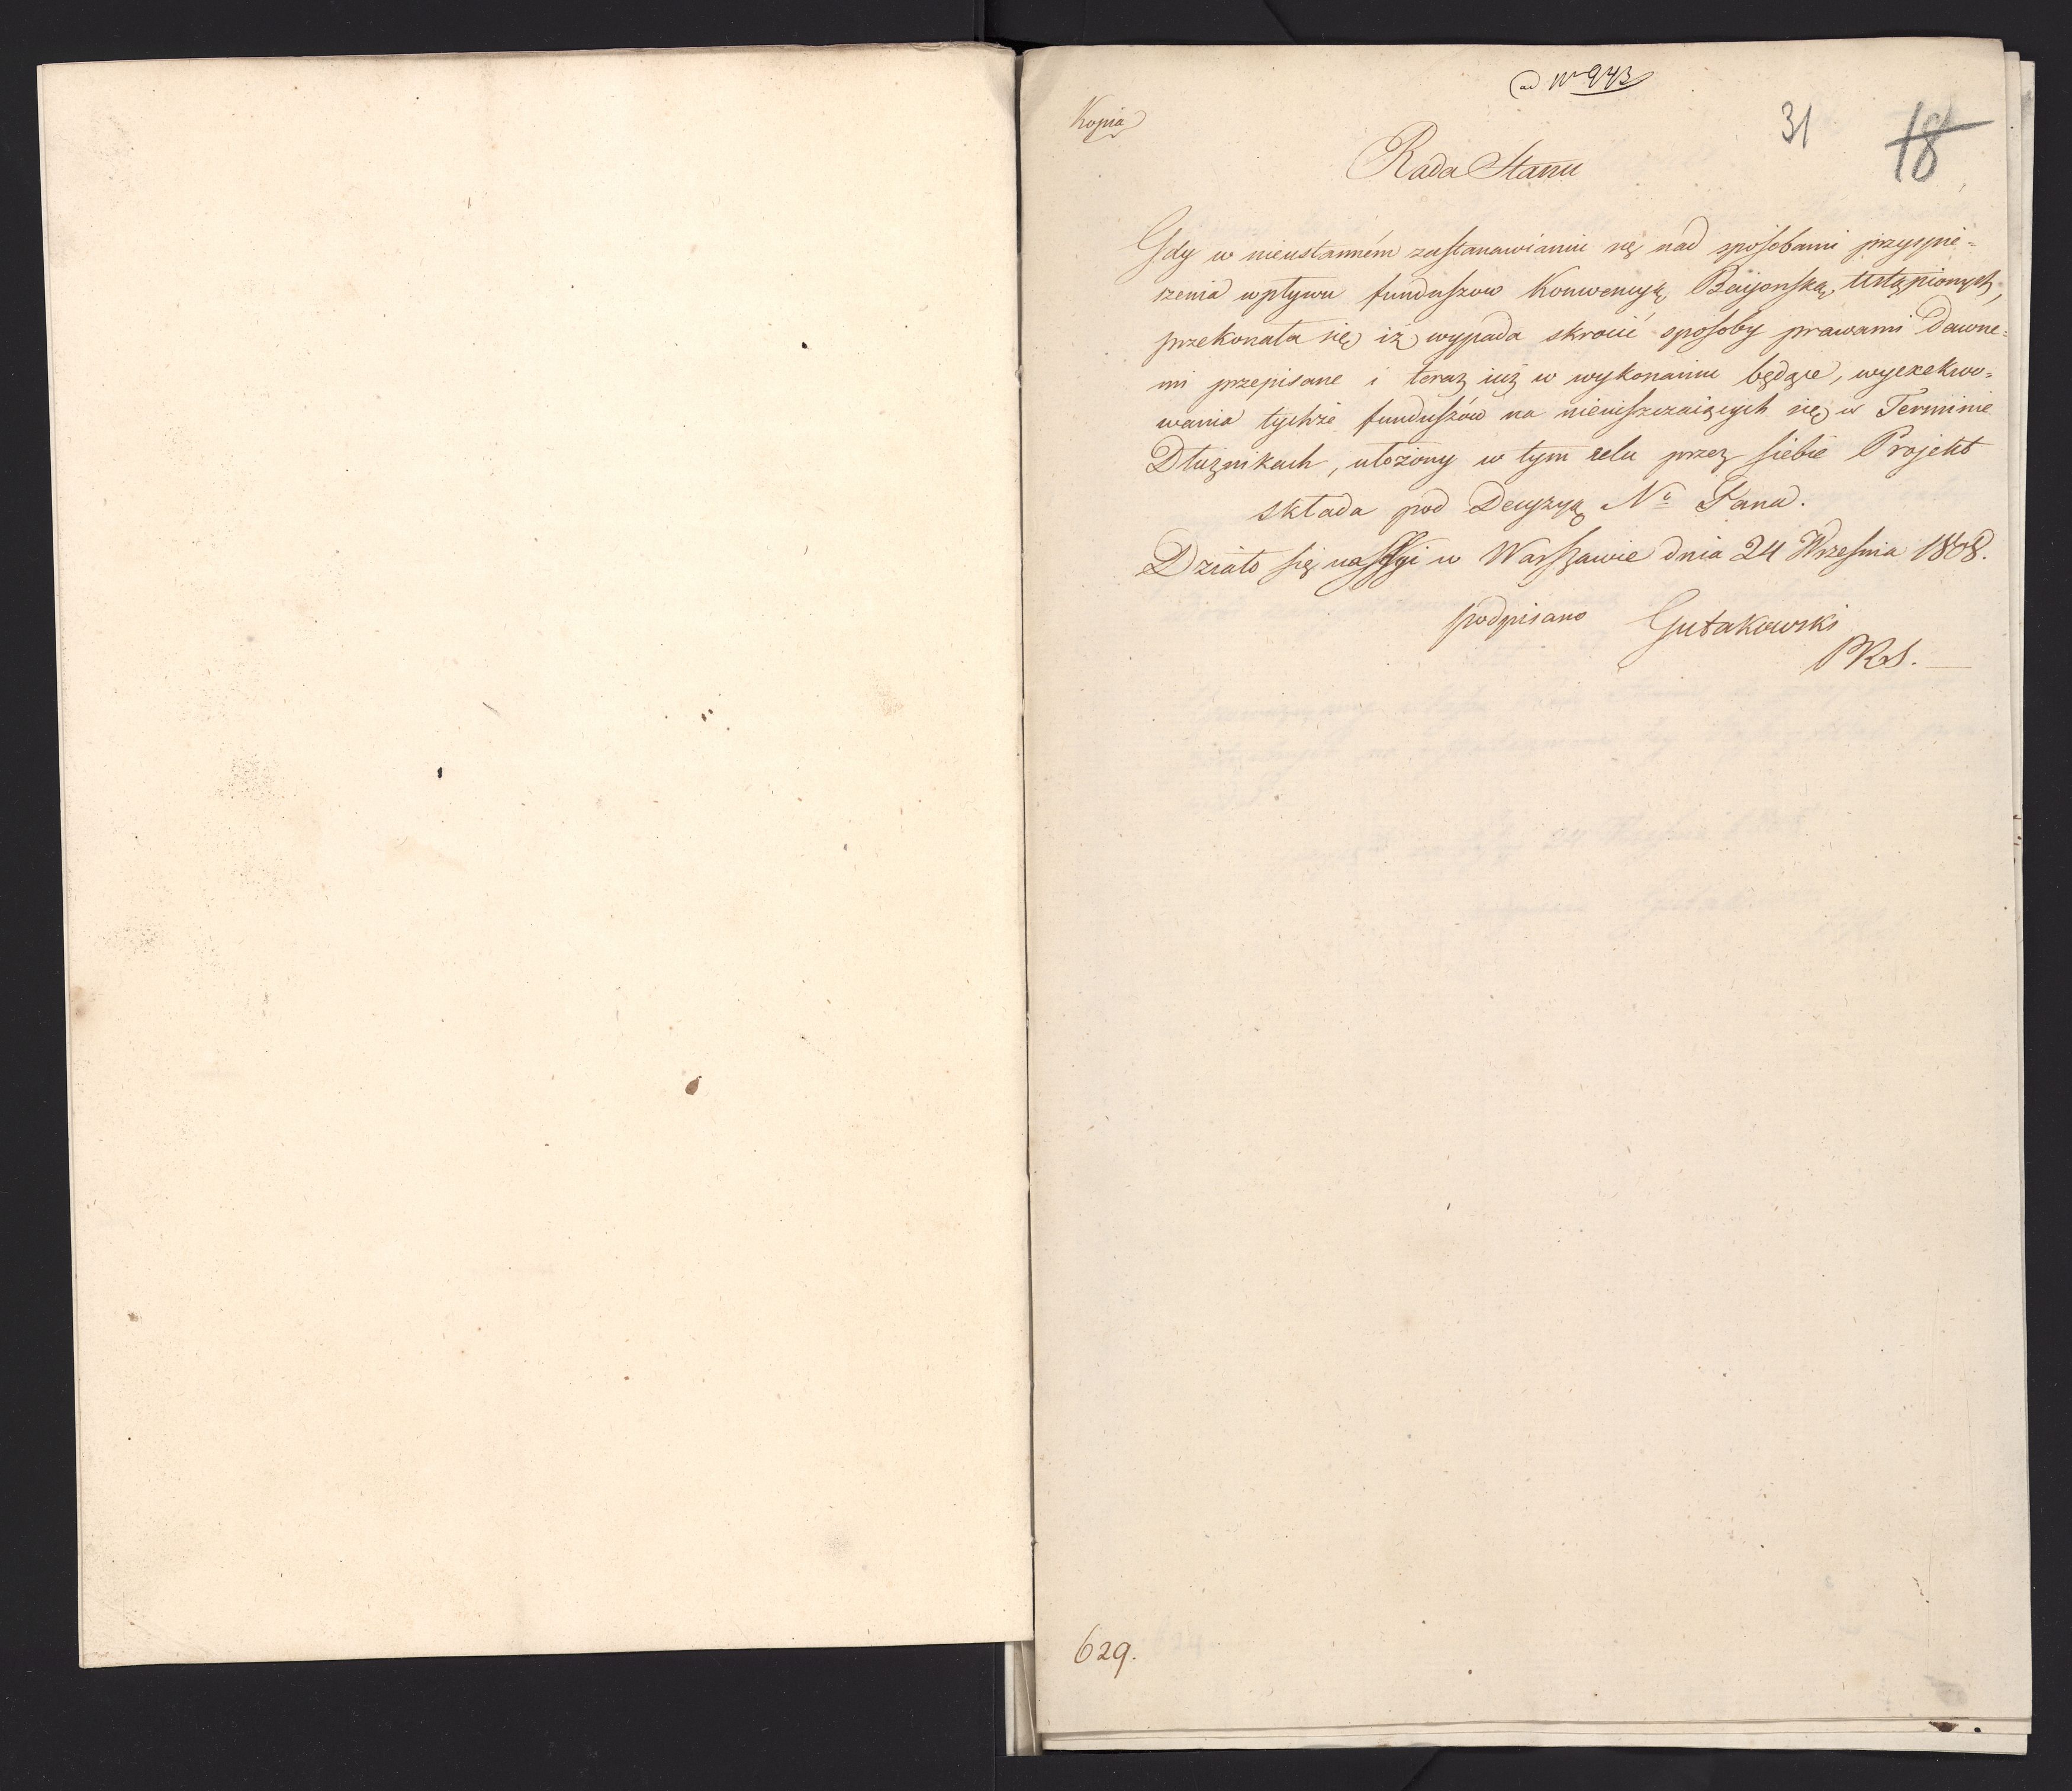 ad Nr 943
Kopia
31 18
Rada Stanu
Gdy w nieustanném zastanawianiu się nad sposobami przyspie=
szenia wpływu funduszow Konwencyą Baijonską Ustąpionych,
przekonała się iż wypada skrocić sposoby prawami dawne=
mi przepisane i teraz iuż w wykonaniu będące, wyexekwo=
wania tychże funduszów na nieuiszczaiących się w Terminie
Dłużnikach, ułożony w tym celu przez siebie Projekt
składa pod Decyzyą Nº Pana.
Działo się na Sessyi w Warszawie dnia 24 Września 1808.
podpisano Gutakowski
PRS.
629.